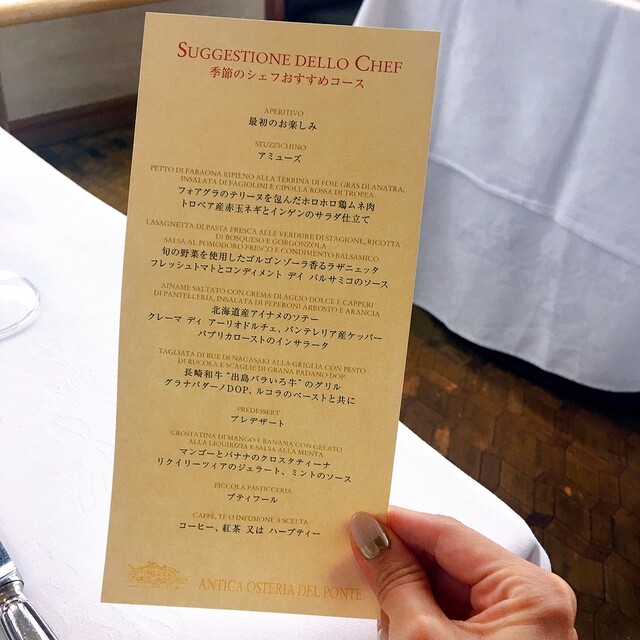 SUGGESTIONE DELLO CHEF
季節のシェフおすすめコース
APERITIVO
最初のお楽しみ
STUZZICHINO
アミューズ
PETTO DI FARAONA RIPIENO ALLA TERRINA DI FOIE GRAS DI ANATRA,
INSALATA DI FAGIOLINI E CIPOLLA ROSSA DI TROPEA
フォアグラのテリーヌを包んだホロホロ鶏ムネ肉
トロペア産赤玉ネギとインゲンのサラダ仕立て
LASAGNETTA DI PASTA FRESCA ALLE VERDURE DI STAGIONE, RICOTTA
DI BOSQUESO E GORGONZOLA
SALSA AL POMODORO FRESCO E CONDIMENTO BALSAMICO
旬の野菜を使用したゴルゴンゾーラ香るラザニェッタ
フレッシュトマトとコンディメント デイ バルサミコのソース
AINAME SALTATO CON CREMA DI AGLIO DOLCE E CAPPERI
DI PANTELLERIA, INSALATA DI PEPERONI ARROSTO E ARANCIA
北海道産アイナメのソテー
クレーマ ディ アーリオドルチェ、パンテレリア産ケッパー
パプリカローストのインサラータ
TAGLIATA DI BUE DI NAGASAKI ALLA GRIGLIA CON PESTO
DI RUCOLA E SCAGLIE DI GRANA PADANO DOP
長崎和牛“出島バラいろ牛”のグリル
グラナパダーノDOP、ルコラのペーストと共に
PREDESSERT
プレデザート
CROSTATINA DI MANGO E BANANA CON GELATO
ALLA LIQUIRIZIA E SALSA ALLA MENTA
マンゴーとバナナのクロスタティーナ
リクイリーツィアのジェラート、ミントのソース
PICCOLA PASTICCERIA
プティフール
CAFFÈ, TÈ O INFUSIONE A SCELTA
コーヒー、紅茶 又は ハーブティー
ANTICA OSTERIA DEL PONTE